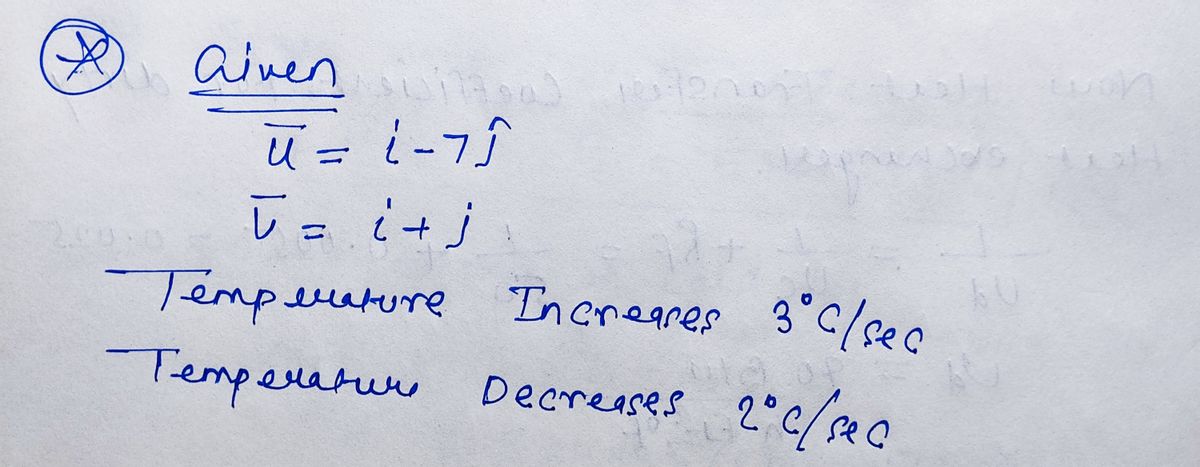 Given
ū = i - 7ĵ
v̄ = i + j
Temperature Increases 3°C/sec
Temperature Decreases 2°C/sec